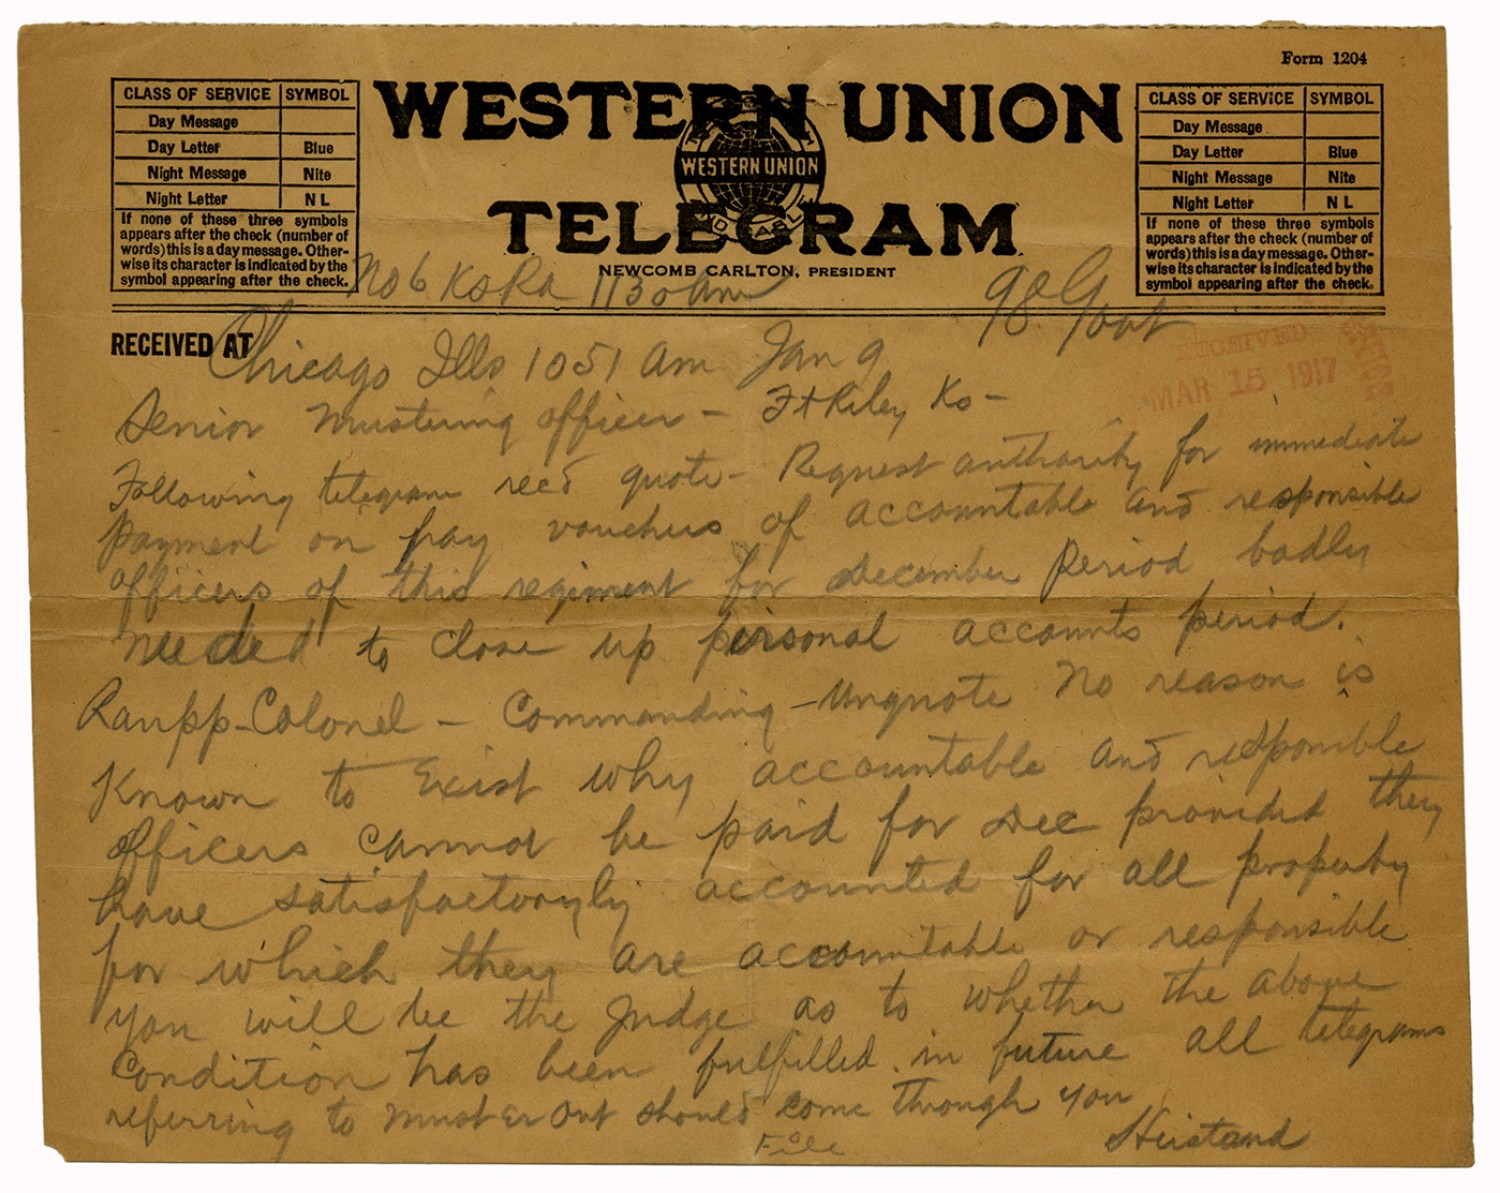 Form 1204
CLASS OF SERVICE SYMBOL
Day Message
Day Letter Blue
Night Message Nite
Night Letter N L
If none of these three symbols
appears after the check (number of
words) this is a day message. Other-
wise its character is indicated by the
symbol appearing after the check.
WESTERN UNION
WESTERN UNION
TELEGRAM
NEWCOMB CARLTON, PRESIDENT
CLASS OF SERVICE SYMBOL
Day Message
Day Letter Blue
Night Message Nite
Night Letter N L
If none of these three symbols
appears after the check (number of
words) this is a day message. Other-
wise its character is indicated by the
symbol appearing after the check.
No 6 Ko Ra 1130 am 98 Govt
RECEIVED AT
RECEIVED
MAR 15 1917
Chicago Ills 1051 am Jan 9
Senior Mustering officer - Ft Riley Ks -
Following telegram recd quote - Request authority for immediate
payment on pay vouchers of accountable and responsible
officers of this regiment for december period badly
needed to close up personal accounts period.
Raupp - Colonel - Commanding - Unquote No reason is
Known to Exist why accountable and responsible
officers cannot be paid for Dec provided they
have satisfactoryly accounted for all property
for which they are accountable or responsible
you will be the Judge as to whether the above
Condition has been fulfilled. in future all telegrams
referring to Muster Out should come through you
Heistand
File